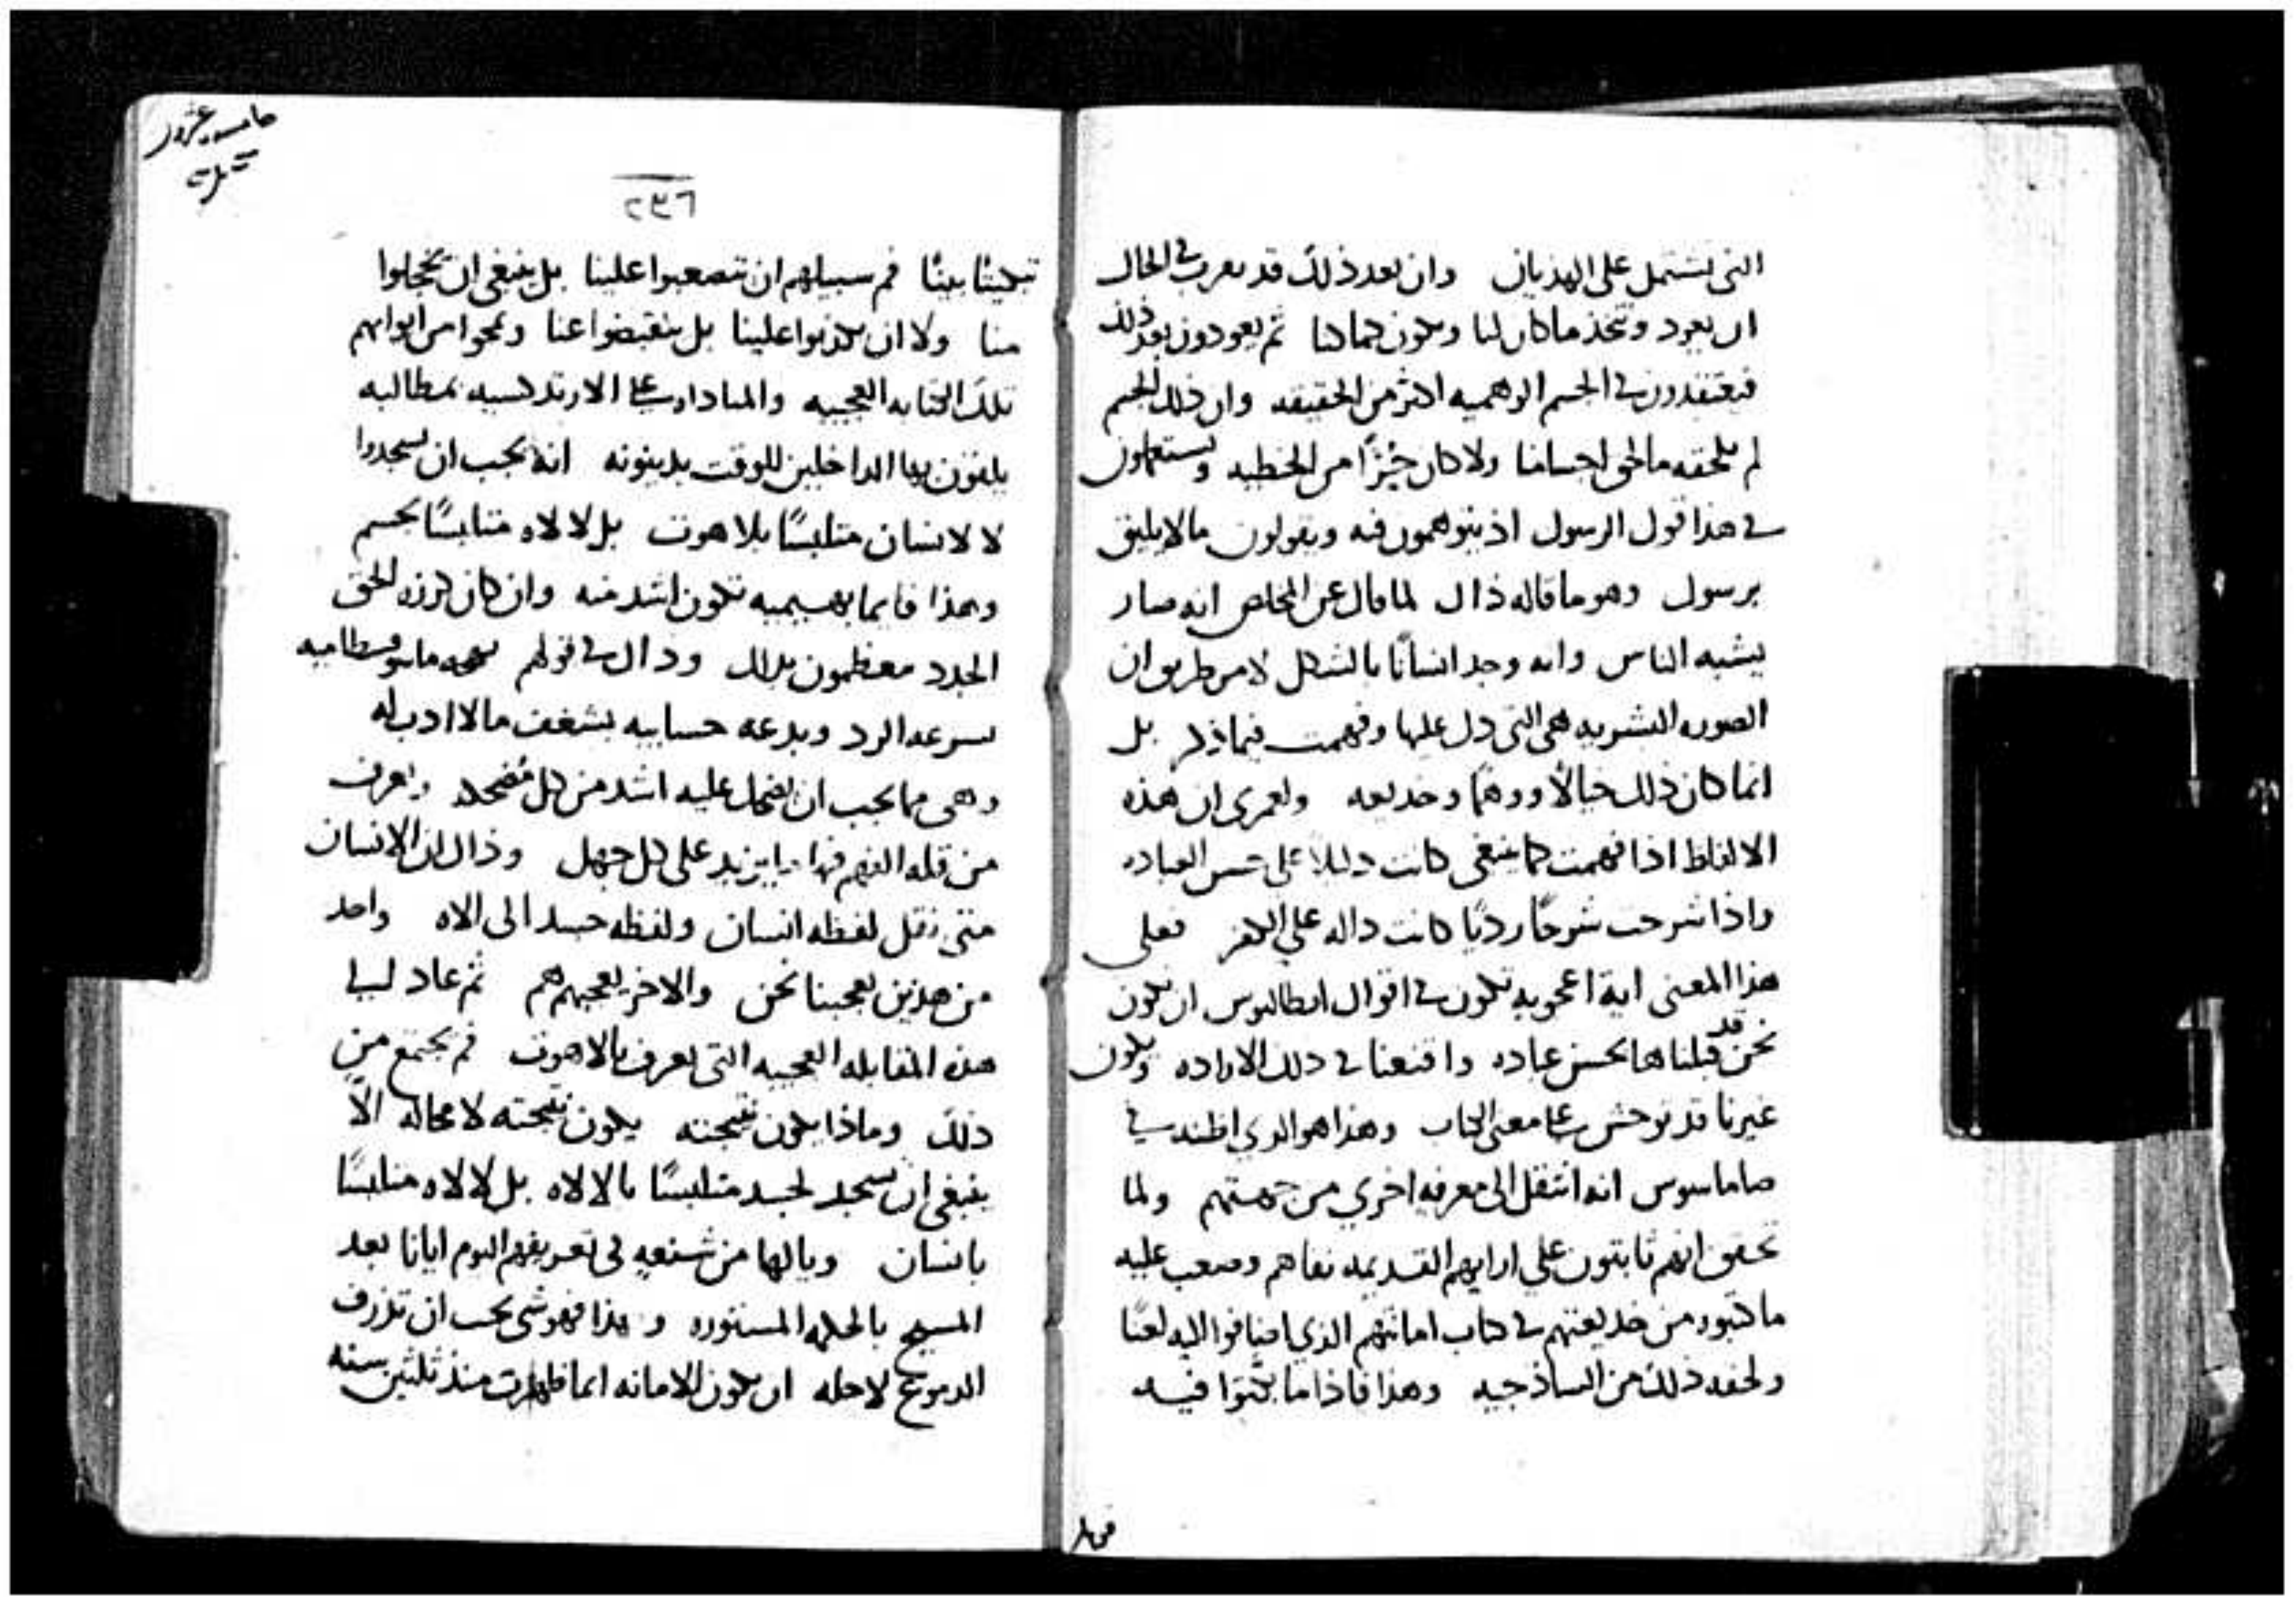 التى تشتمل على الهذيان وان بعد ذلك قد يعرب فى الحال
ان يعود ويتخذ ما كان لنا ويكون كما كنا ثم يعودون بعد ذلك
فيعتقدون فى الجسم الوهميه اكثر من الحقيقه وان ذلك الجسم
لم يلحقه ما لحق اجسامنا ولا كان خيّرًا من الخطيه ويستعملون
فى هذا قول الرسول اذ يتوهمون فيه ويقولون ما لا يليق
برسول وهو ما قاله ذال لما قال عن المخلص انه صار
يشبه الناس وانه وجد انسانًا بالشكل لا من طريق ان
الصوره البشريه هى التى دل عليها وفهمت فيما ذكر بل
انما كان ذلك خيالًا ووهمًا وخديعه ولعمرى ان هذه
الالفاظ اذا فهمت كما ينبغى كانت دليلا على حسن العباده
واذا شرحت شرحًا رديًا كانت داله على الكفر فعلى
هذا المعنى اية اعجوبه تكون فى اقوال ابطاليوس ان تكون
نحن قد قبلناها بحسن عباده واقنعنا فى ذلك الاراده ويكون
غيرنا قد توحش على معنى الكتاب وهذا هو الذي اظنه فى
صاماسوس انه انتقل الى معرفه اخري من جهتهم ولما
تحقق انهم ثابتون على ارايهم القديمه نفاهم وصعب عليه
ما كتبوه من خديعتهم فى كتاب امانتهم الذي اضافوا اليه لعنًا
ولحقه ذلك من الساذجيه وهذا فاذا ما بكتوا فيه
فمل
٢٩٦
تبكيتًا بينًا فم سبيلهم ان تتصعبوا علينا بل ينبغى ان يخجلوا
منا ولا ان يكذبوا علينا بل ينقبضوا عنا ويمحوا من ابوابهم
تلك الكتابه العجيبه والمناداه على الارتدكسيه بمطالبه
يلقون بها الداخلين للوقت بدينونه انه يجب ان يسجدوا
لا لانسان متلبسًا بلاهوت بل لالاه متلبسًا بجسم
وهذا فايما بهيميه تكون اشد منه وان كان كرزة الحق
الجدد معظمون بذلك وذال فى قولهم
بسرعه الرد وبدعه حسابيه بشغف مالا ادب له
وهى مما يجب ان يضحك عليه اشد من كل مضحك ويعرف
من قلة الفهم فيها ما يزيد على كل جهل وذال ان الانسان
متى نقل لفظه انسان ولفظه جسد الى الاه واحد
من هذين يعجبنا نحن والاخر يعجبهم هم ثم عاد لى فى
هذه المقابله العجيبه التى تعرف بالاهوت فم يجتمع من
ذلك وماذا يكون نتيجته يكون نتيجته لا محاله الّا
ينبغى ان يسجد لجسد متلبسًا بالالاه بل لالاه متلبسًا
بانسان ويالها من شنعه فى تعريفهم اليوم ايانا بعد
المسيح بالحكمه المستوره وهذا فهو شى يجب ان تذرف
الدموع لاجله ان يكون الامانه انما ظهرت منذ ثلثين سنه